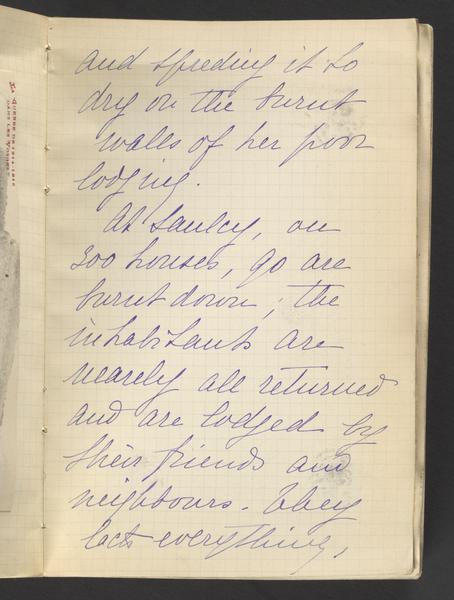 LA GUERRE DE 1914-1915
DANS LES VOSGES
and spreding it to
dry on the burnt
walls of her poor
lodging.
At Saulcy, on
300 houses, 90 are
burnt down; the
inhabitants are
nearely all returned
and are lodged by
their friends and
neighbours. They
lacts everything,